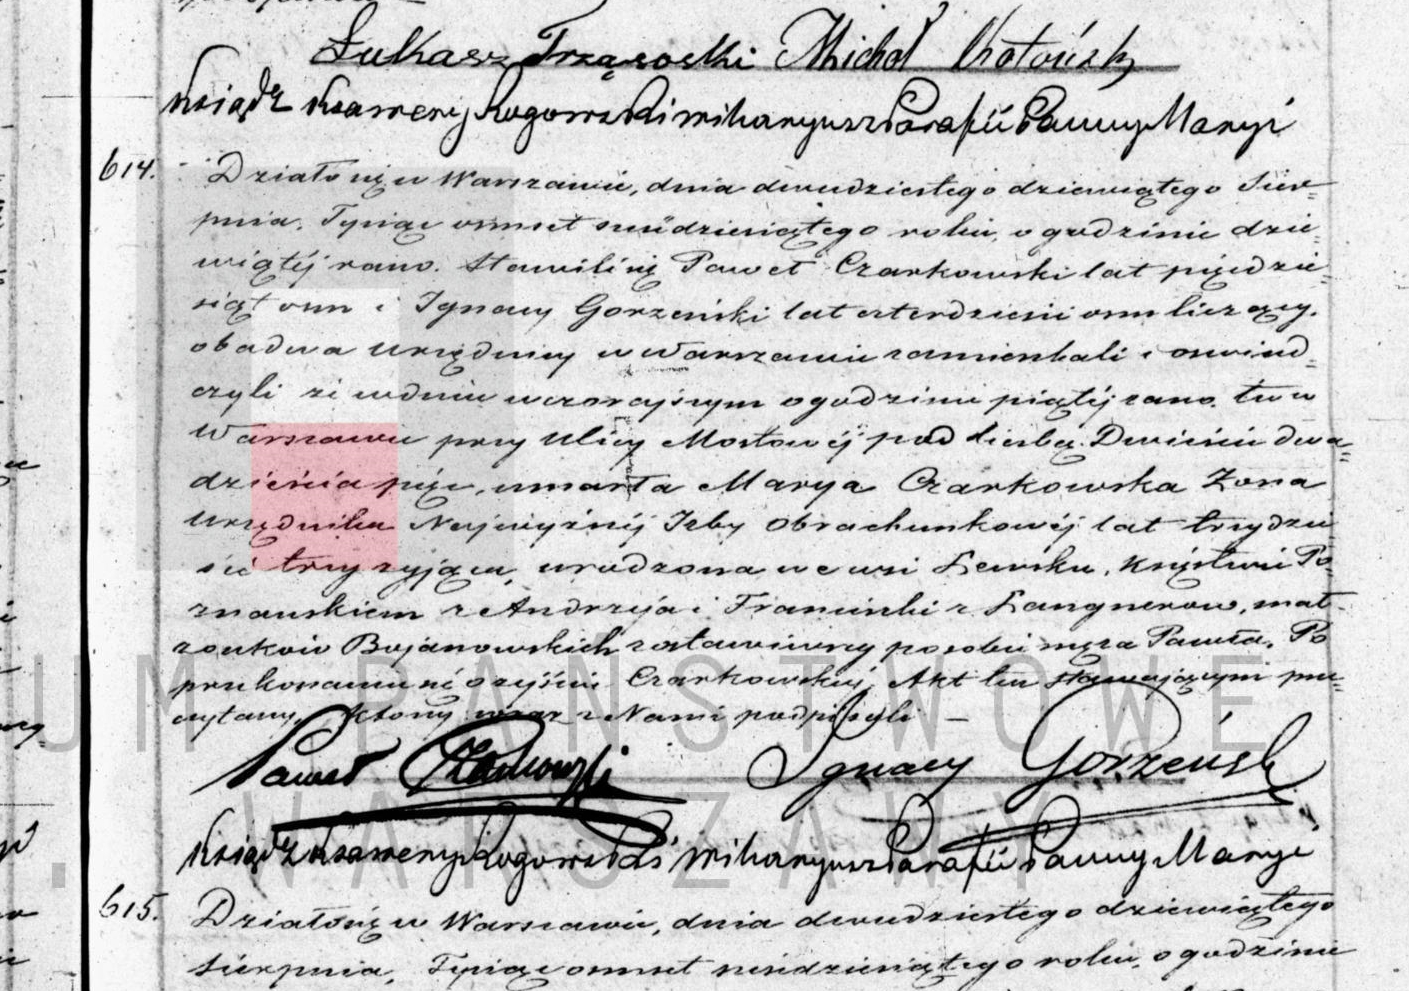 Łukasz Trząsoski Michał
Ksiądz Ksawery Rogowski wikaryusz Parafii Panny Maryi
614. Działo się w Warszawie, dnia dwudziestego dziewiątego Sier-
pnia, Tysiąc osmset sześdziesiątego roku, o godzinie dzie-
wiątéj rano. Stawili się Paweł Czarkowski lat pięćdzie-
siąt osm i Ignacy Gorzeński lat czterdzieści osm liczący.
obadwa urzędnicy w Warszawie zamieszkali i oswiad-
czyli że w dniu wczorajszym o godzinie piątéj rano. tu w
Warszawie przy ulicy Mostowéj pod liczbą Dwieście dwa-
dzieścia pięć, umarła Marya Czarkowska Żona
urzędnika Najwyższéj Izby Obrachunkowéj lat trzydzie-
ści trzy żyjąca, urodzona we wsi Lewsku, Księstwie Po-
znańskiem z Andrzeja i Franciszki z Langnerow, mał-
żonków Bojanowskich zostawiwszy po sobie męża Pawła, Po
przekonaniu się o zejściu Czarkowskiéj, Akt ten stawającym prze-
czytany, który wraz z Nami podpisali —
Paweł Czarkowski Ignacy Gorzeński
Ksiądz Ksawery Rogowski wikaryusz Parafii Panny Maryi
615. Działo się w Warszawie, dnia dwudziestego dziewiątego
Sierpnia, Tysiąc osmset sześdziesiątego roku, o godzinie
UM PAŃSTWOWE
. WARSZAWY